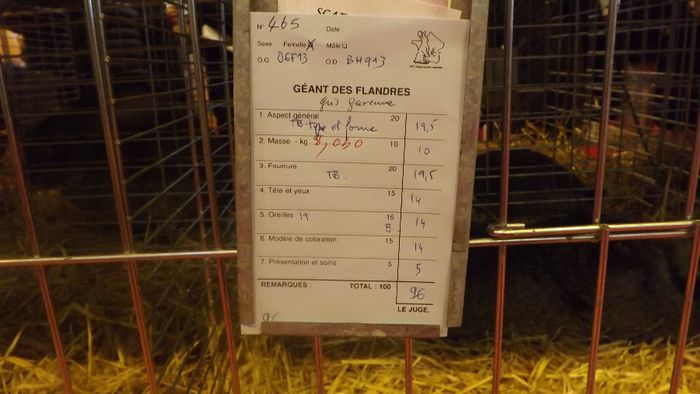 N° 465 Date :
Sexe Femelle X Mâle
O.G. D6F13 O.D BH913
GÉANT DES FLANDRES
gris garenne
1. Aspect général 20 19,5
TB. type et forme
2. Masse - kg. 8,050 10 10
3. Fourrure 20 19,5
TB.
4. Tête et yeux 15 14
5. Oreilles 19 15 14
B.
6. Modèle de coloration 15 14
7. Présentation et soins 5 5
REMARQUES : TOTAL : 100 96
LE JUGE,
96